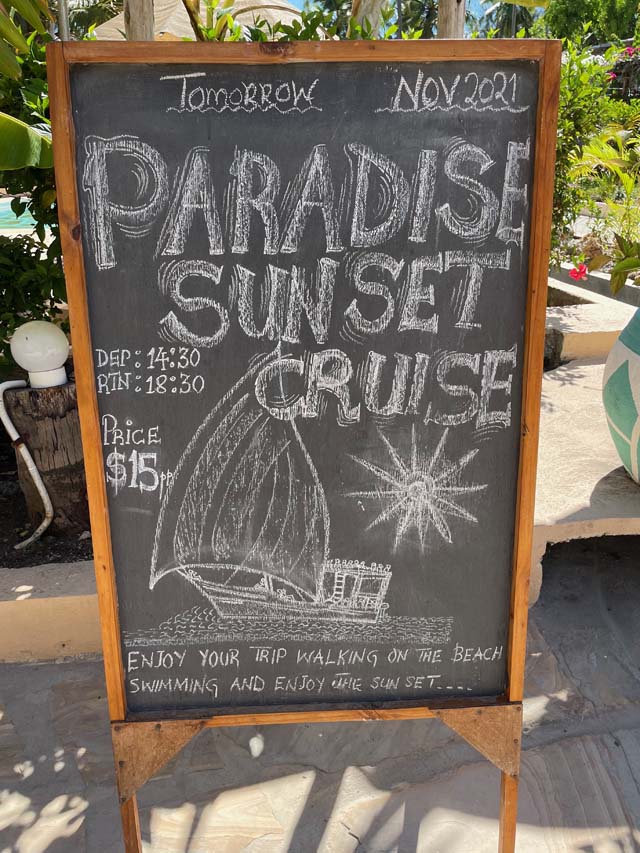 Tomorrow NOV 2021
PARADISE
SUN SET
CRUISE
DEP: 14:30
RTN: 18:30
PRICE
$15pp
ENJOY YOUR TRIP WALKING ON THE BEACH
SWIMMING AND ENJOY THE SUN SET....